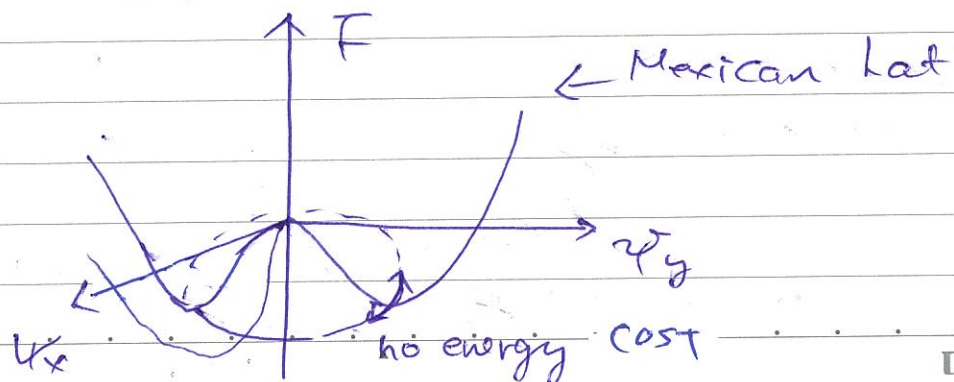 F
← Mexican hat
Ψy
Ψx
no energy cost